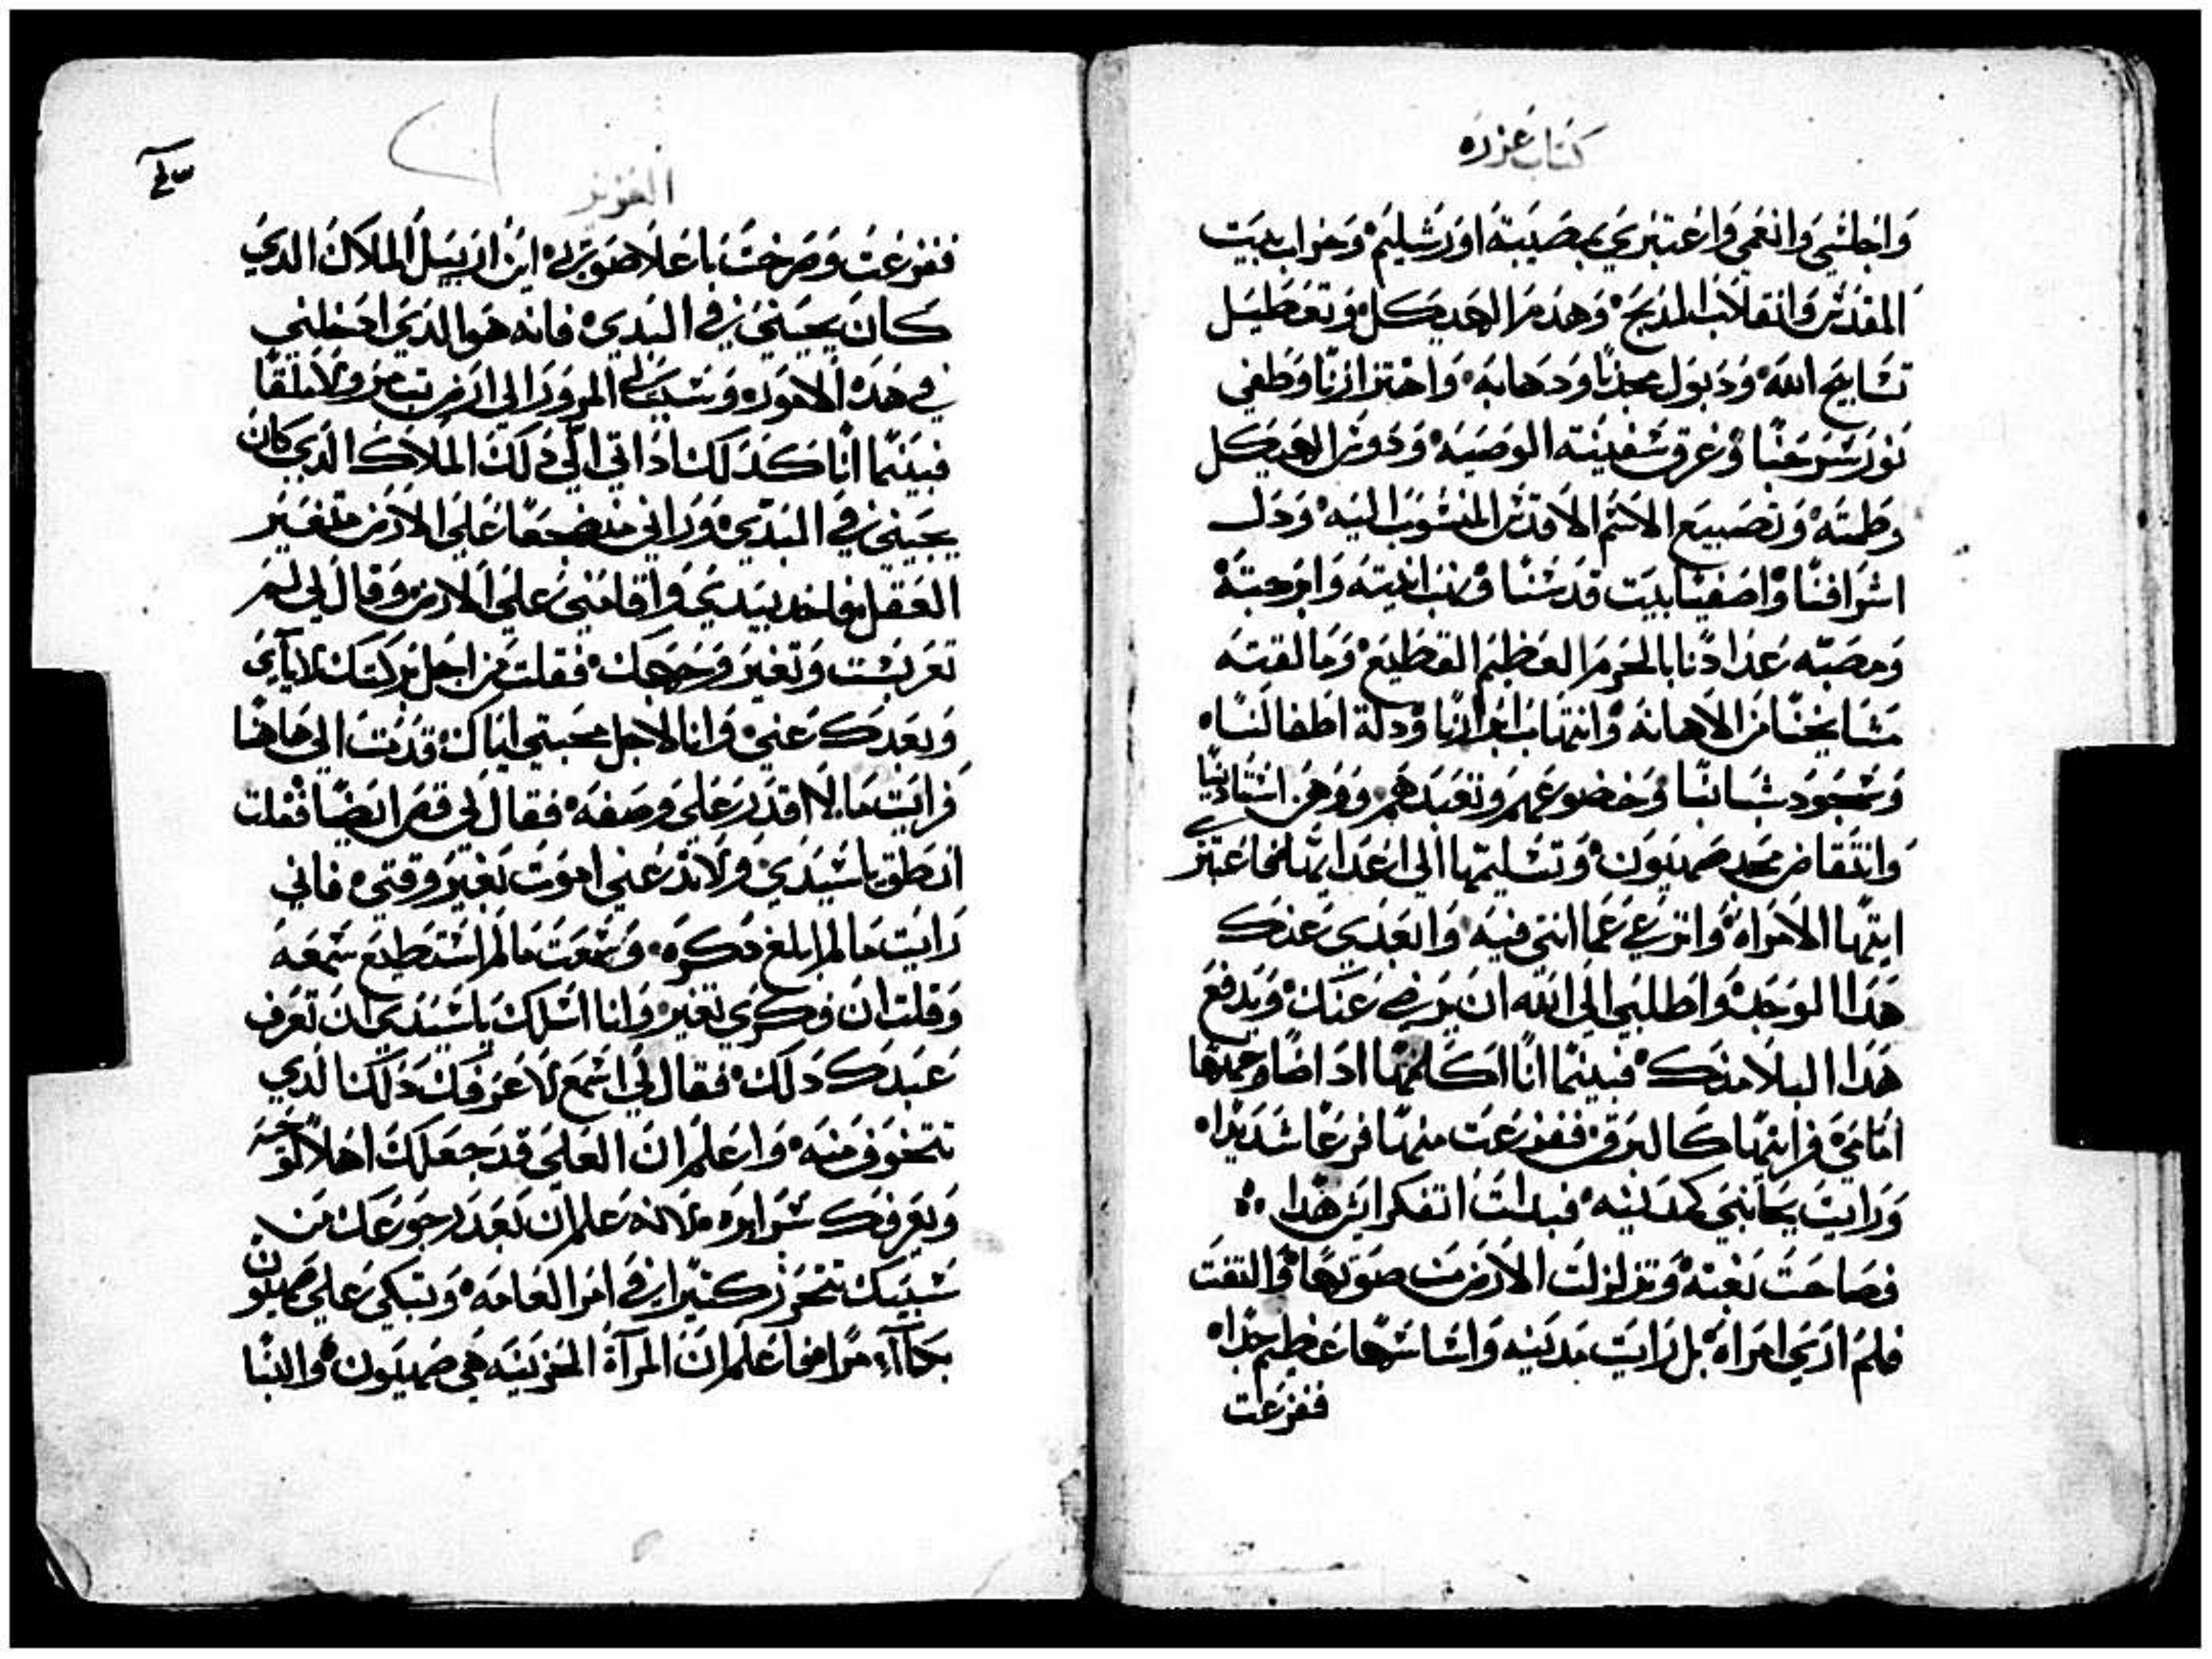 كتاب عزره
وَاجلسَي وَانعَمي وَاعتبَري بمصَيبَة اوَرَشَليَم وَخرَاب بيَت
المقدَس وَانقلاَب المدَبَح وَهدَم الهَيكَل وَتعَطيَل
تسَابيَح اللهَ وَدَبوَل مجدَنا وَدهَابهَ وَاهتزازنا وَطَفي
نوَر سَرجَنا وَغرَق سَفينَته الوَصَيَه وَدَوسَ الهيَكل
وَطَمتَه وَتضَييَع الاسَم الاقدَس المنسَوب اليَه وَدَل
اشَرَافنَا وَاصَفيَا بيَت قدسَنا
عَدَادنا بالجرَم العَظيَم الفظَيَع وَمَا لقيَته
مَشَايخنَا مَن الاهَانهَ وَانتهَاب ابرَارنا وَدلة اطَفالنَا
وَسَجَوَد شَبَابنَا وَخضَوعَهم وَتعَبَدهَم وَوَهَن اسَتادَينَا
وَانتقَاض مجد صَهيَوَن وَتسَليَمَها الي اعَدَايهَا فاعَتبَرَ
ايتهَا الامَرَاه وَاترَعي عَما انتي فيَه وَابعَدَي عَنكَ
هَدَا الوَجدَ وَاطلبَي الي الله ان يَرضي عَنكَ وَيدفَعَ
هَدَا البلا منكَ فبينَما انَا اكَلمَها ادَ اضَا وَجهَهَا
امَامَي فرَايتهَا كَالبرَق ففزعَت منهَا فزعَا شَدَيَدَا
وَرَايَت بجَانبَي كمدَينَه فبدات اتفكرَ ايَش هَدَا
فصَاحَت بَغتهَ وَتزلزلت الارَض مَن صَوَتهَا وَالتفتَ
فلمَ ارَي امرَاه بل رَايَت مَدَينَه وَاسَاسَهَا عَظيم جدَا
ففزعَت
العزيز
ففزعَت وَصَرخَت باعَلا صَوَتي اين اريَيل الملاَك الدَي
كانَ يجيَني في البَدَي فانه هَو الدَي ادخلني
في هَدَه الامَوَر
فبَينَما انَا كَدَلك ادَ اتي الَي دلك المَلاَك الدي كان
يجَيني في البَدَي وَرَاني منضَجعَا عَلي الارض متغَيَر
العَقل فاخد بيَدي وَاقامَني عَلي الارض وَقال لي لمَ
تعَربَشت وَتغيَر وَجهَك فقلت مَن اجَل تركَك لايَاي
وَبعَدكَ عَني وَانا لاجل محَبتي ايَاك قدمَت الي هَاهنَا
فرَايَت مَا لا اقدَر عَلي وَصَفهَ فقالَ لي قصَ ايَضًا فقلت
انطَلق يَاسَيَدي وَلاتدَعَني امَوَت بغَيَر وَقتي فاني
رَايَت مَا لم ابلغ فكَرَه وَسَمعَت مَا لم اسَتطَيَع سَمعَهَ
وَقلت ان فكَري تغيَر وَانا اسَلك يَاسَيَدي ان تعَرف
عَبدَكَ دَلك فقالَ لي اسَمَع لاعَرفكَ دَلك الدَي
تتخوَف منَه وَاعلم انَ العَلي قد جعَلك اهَلا لوَحيه
وَيعَرفكَ سَرَايره لانه عَلم ان بعَد رجَوعَك مَن
سَبيَك تتحَزن كثيَرا في امَر العَامَه وَتبَكي عَلي صَهيَون
بكاء مرَا فاعَلم انَ المرآة الحَزينَه هي صَهيَون وَالبنَا